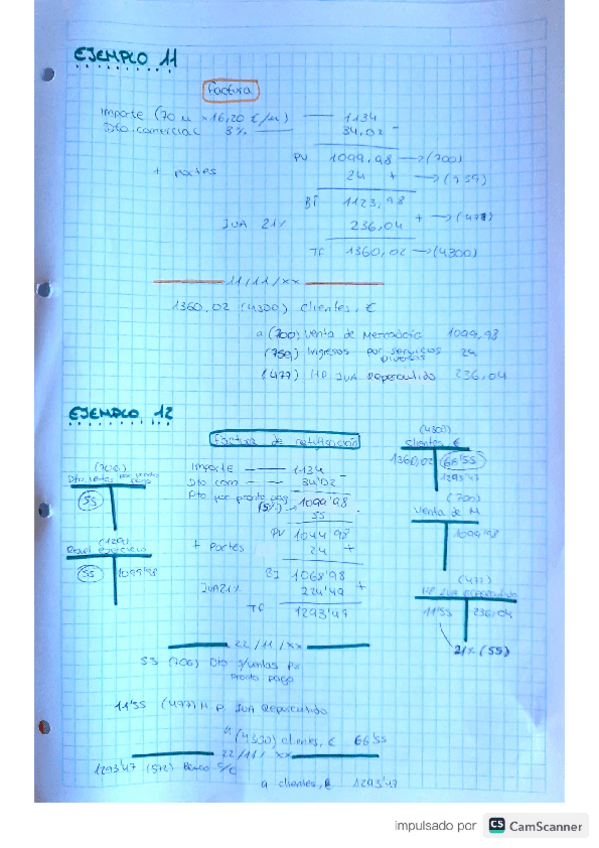 EJEMPLO 11
Factura
Importe (70 u × 16,20 €/u) — 1134
Dto. comercial 3% — 34,02 -
PV 1099,98 → (700)
+ portes 24 + → (759)
BI 1123,98
IVA 21% 236,04 + → (477)
TF 1360,02 → (4300)
11/11/xx
1360,02 (4300) clientes, €
a (700) Venta de Mercadería 1099,98
(759) Ingresos por servicios
diversos 24
(477) HP IVA Repercutido 236,04
EJEMPLO 12
Factura de rectificación
(4300)
clientes €
1360,02 66'55
1293'47
(706)
Dto ventas por pronto
pago
55
Importe — 1134 -
Dto com — 34'02
Dto por pronto pag 1099'98
(5%) - 55
PV 1044'98
+ Portes 24 +
BI 1068'98
IVA 21% 224'49 +
TF 1293'47
(700)
Venta de M
1099'98
(129)
Resul ejercicio
55 1099'98
(477)
HP IVA repercutido
11'55 236,04
21% (55)
22/11/xx
55 (706) Dto s/ventas por
pronto pago
11'55 (477) H.P. IVA Repercutido
a (4300) clientes, € 66'55
22/11/xx
1293'47 (572) Banco c/c
a clientes, € 1293'47
impulsado por CS CamScanner